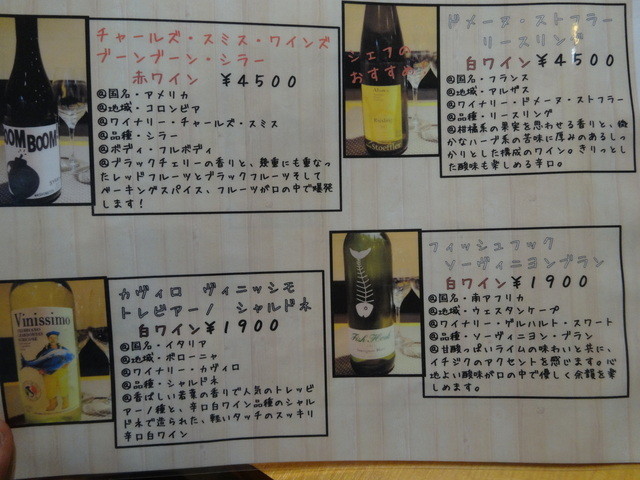 チャールズ・スミス・ワインズ
ブーンブーン・シラー
赤ワイン ¥4500
@国名・アメリカ
@地域・コロンビア
@ワイナリー・チャールズ・スミス
@品種・シラー
@ボディ・フルボディ
@ブラックチェリーの香りと、幾重にも重なっ
たレッドフルーツとブラックフルーツそして
ベーキングスパイス、フルーツが口の中で爆発
します!
BOOM
BOOM
シェフの
おすすめ
Stoeffler
ドメーヌ・ストフラー
リースリング
白ワイン ¥4500
@国名・フランス
@地域・アルザス
@ワイナリー・ドメーヌ・ストフラー
@品種・リースリング
@柑橘系の果実を思わせる香りと、微
かなハーブ系の苦味に厚みのあるしっ
かりとした構成のワイン。きりっとし
た酸味も楽しめる辛口。
Vinissimo
カヴィロ ヴィニッシモ
トレビアーノ シャルドネ
白ワイン¥1900
@国名・イタリア
@地域・ボローニャ
@ワイナリー・カヴィロ
@品種・シャルドネ
@香ばしい若葉の香りで人気のトレッビ
アーノ種と、辛口白ワイン品種のシャル
ドネで造られた、軽いタッチのスッキリ
辛口白ワイン
Fish Hoek
フィッシュフック
ソーヴィニヨンブラン
白ワイン¥1900
@国名・南アフリカ
@地域・ウェスタンケープ
@ワイナリー・ゲルハルト・スワート
@品種・ソーヴィニヨン・ブラン
@甘酸っぱいライムの味わいと共に、
イチジクのアクセントを感じます。心
地よい酸味が口の中で優しく余韻を楽
しめます。